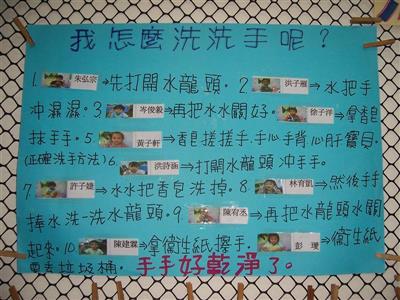 我怎麼洗洗手呢？
1. 朱弘宗 →先打開水龍頭. 2 洪子雁 →水把手
沖濕濕. 3 岑俊毅 →再把水水關好. 徐子洋 →拿香皂
抹手手. 5. 黃子軒 →香皂搓搓手、手心手背心肝寶貝.
(正確洗手方法) 6 洪詩涵 →打開水龍頭沖手手.
7 許子婕 →水水把香皂洗掉. 8. 林育凱 →然後手手
捧水洗一洗水龍頭. 9 陳宥丞 →再把水龍頭水關
起來. 10 陳建霖 →拿衛生紙擦手. 彭璦 →衛生紙
要丟垃圾桶. 手手好乾淨了。